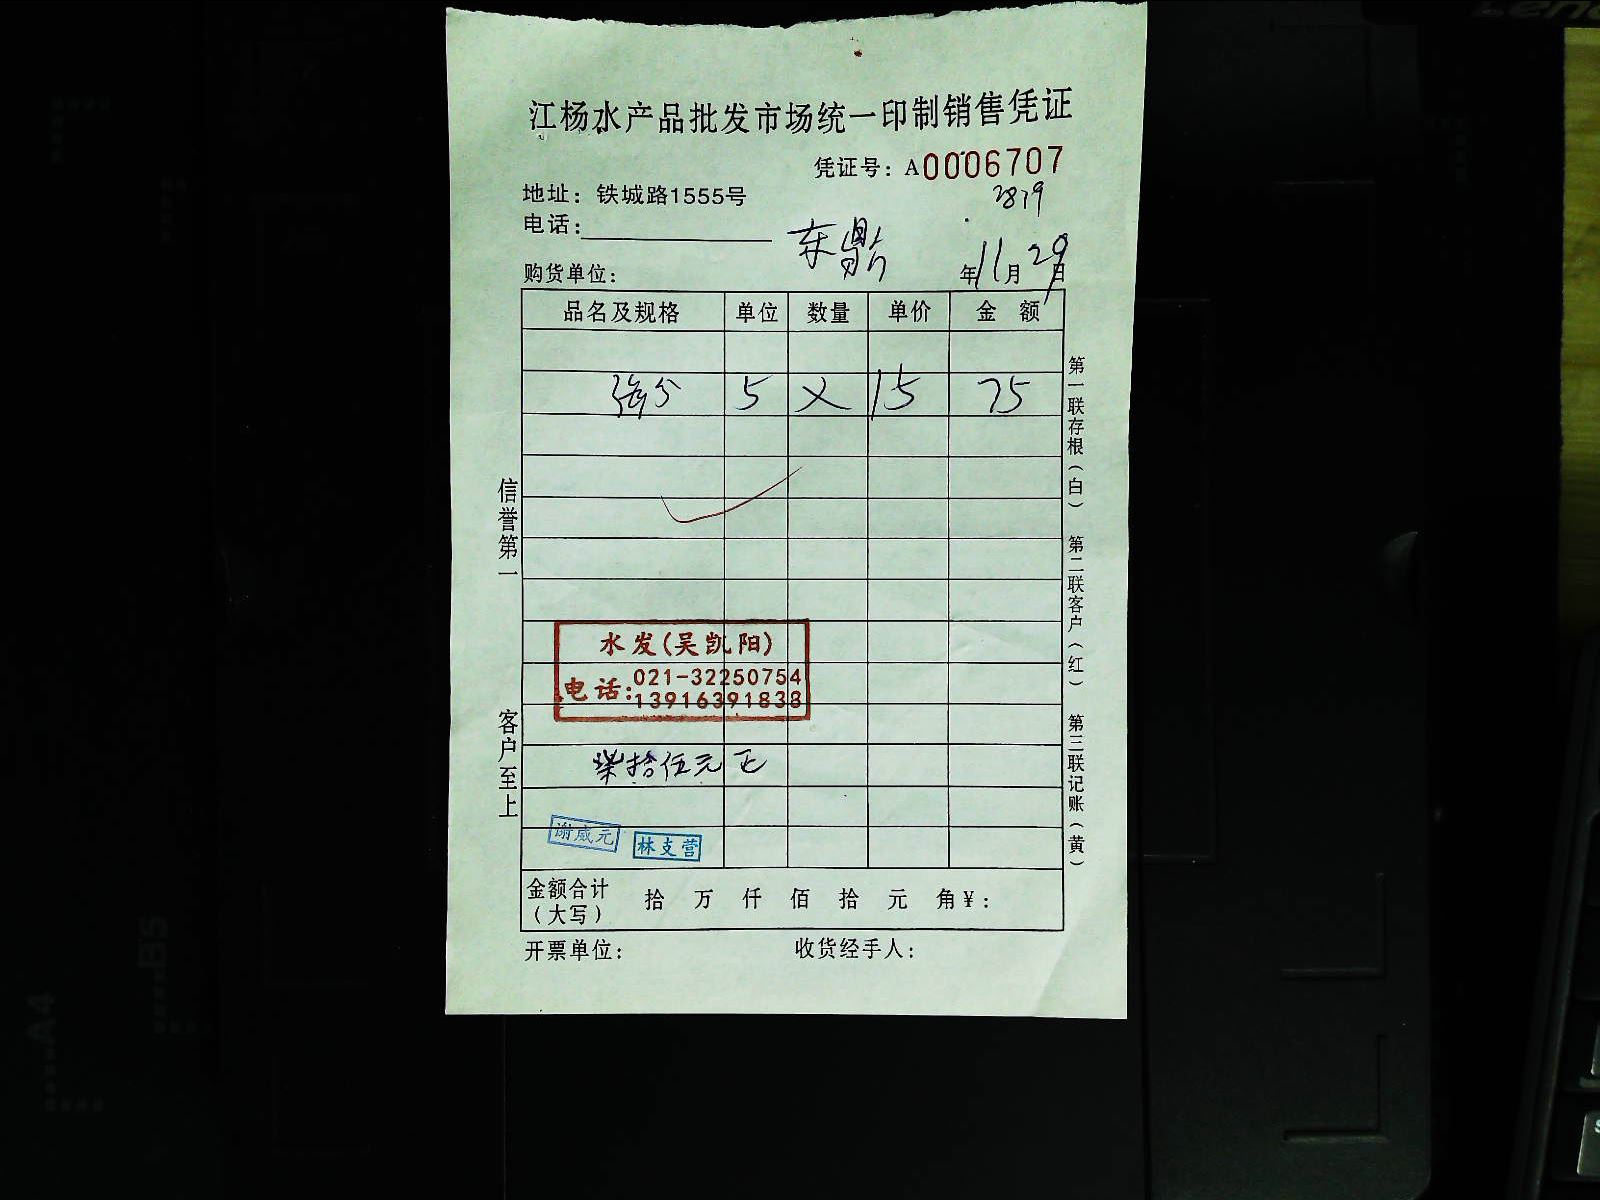 江杨水产品批发市场统一印制销售凭证
凭证号：A0006707
2819
地址：铁城路1555号
电话：
东鼎
购货单位：
年11月29日
品名及规格 单位 数量 单价 金 额
5 × 15 75
水发(吴凯阳)
电话:021-32250754
13916391838
柒拾伍元正
谢威元
林支营
金额合计
（大写） 拾 万 仟 佰 拾 元 角¥：
开票单位： 收货经手人：
信誉第一
客户至上
第一联存根（白）
第二联客户（红）
第三联记账（黄）
A4
B5